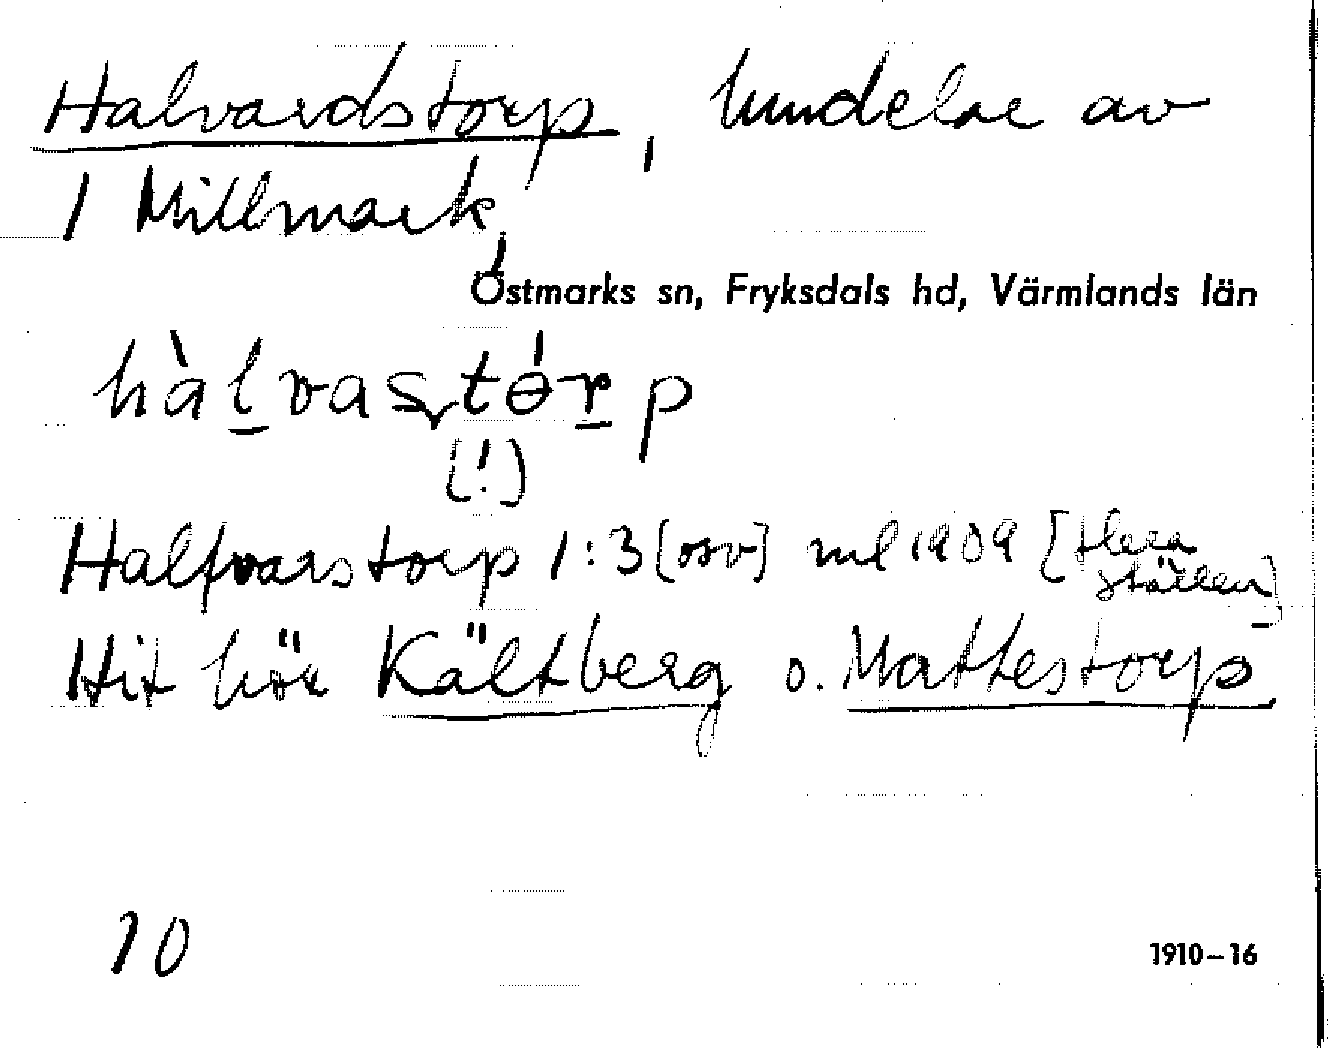 Halvardstorp, hemdelar av
1 Millmark,
Östmarks sn, Fryksdals hd, Värmlands län
hàlvastɵ́rp
(!)
Halfvarstorp 1:3 [osv] ml 1909 [flera
ställen]
Hit hör Kältberg o. Mattestorp
10
1910–16